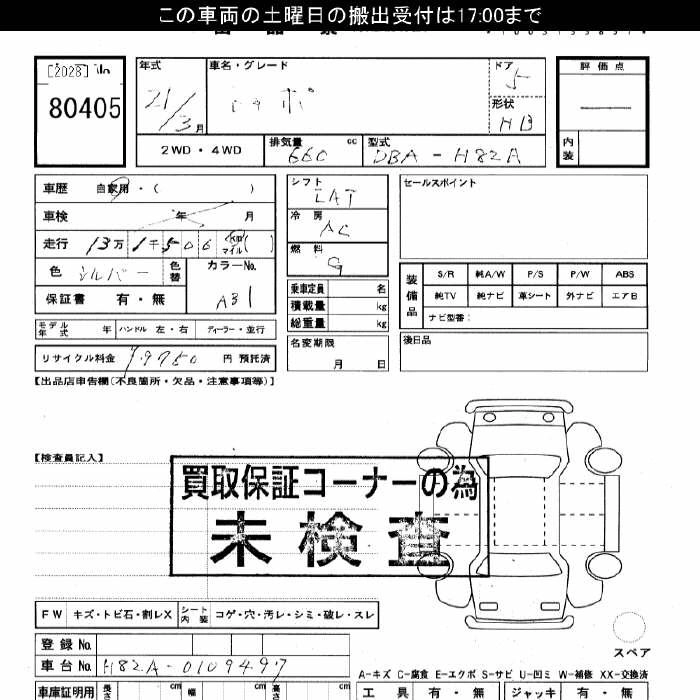 この車両の土曜日の搬出受付は17:00まで
80405
年式
21/3月
車名・グレード
トッポ
ドア
5
形状
HB
評価点
内装
2WD・4WD
排気量
660 cc
型式
DBA-H82A
車歴 自家用・( )
車検 年 月
走行 13万 1千506 km マイル ( )
色 シルバー 色替
カラーNo.
A31
保証書 有・無
モデル年式 年 ハンドル 左・右 ディーラー・並行
リサイクル料金 円 預託済
シフト
LAT
冷房
AC
燃料
G
乗車定員 名
積載量 kg
総重量 kg
名変期限
月 日
セールスポイント
装備品
S/R 純A/W P/S P/W ABS
純TV 純ナビ 革シート 外ナビ エアB
ナビ型番:
後日品
【出品店申告欄(不良箇所・欠品・注意事項等)】
【検査員記入】
買取保証コーナーの為
未検査
FW キズ・トビ石・割レX シート内装 コゲ・穴・汚レ・シミ・破レ・スレ
スペア
登録 No.
車台 No. H82A-0109497
A-キズ C-腐食 E-エクボ S-サビ U-凹ミ W-補修 XX-交換済
車庫証明用 長さ cm 幅 cm 高さ cm
工具 有・無 ジャッキ 有・無